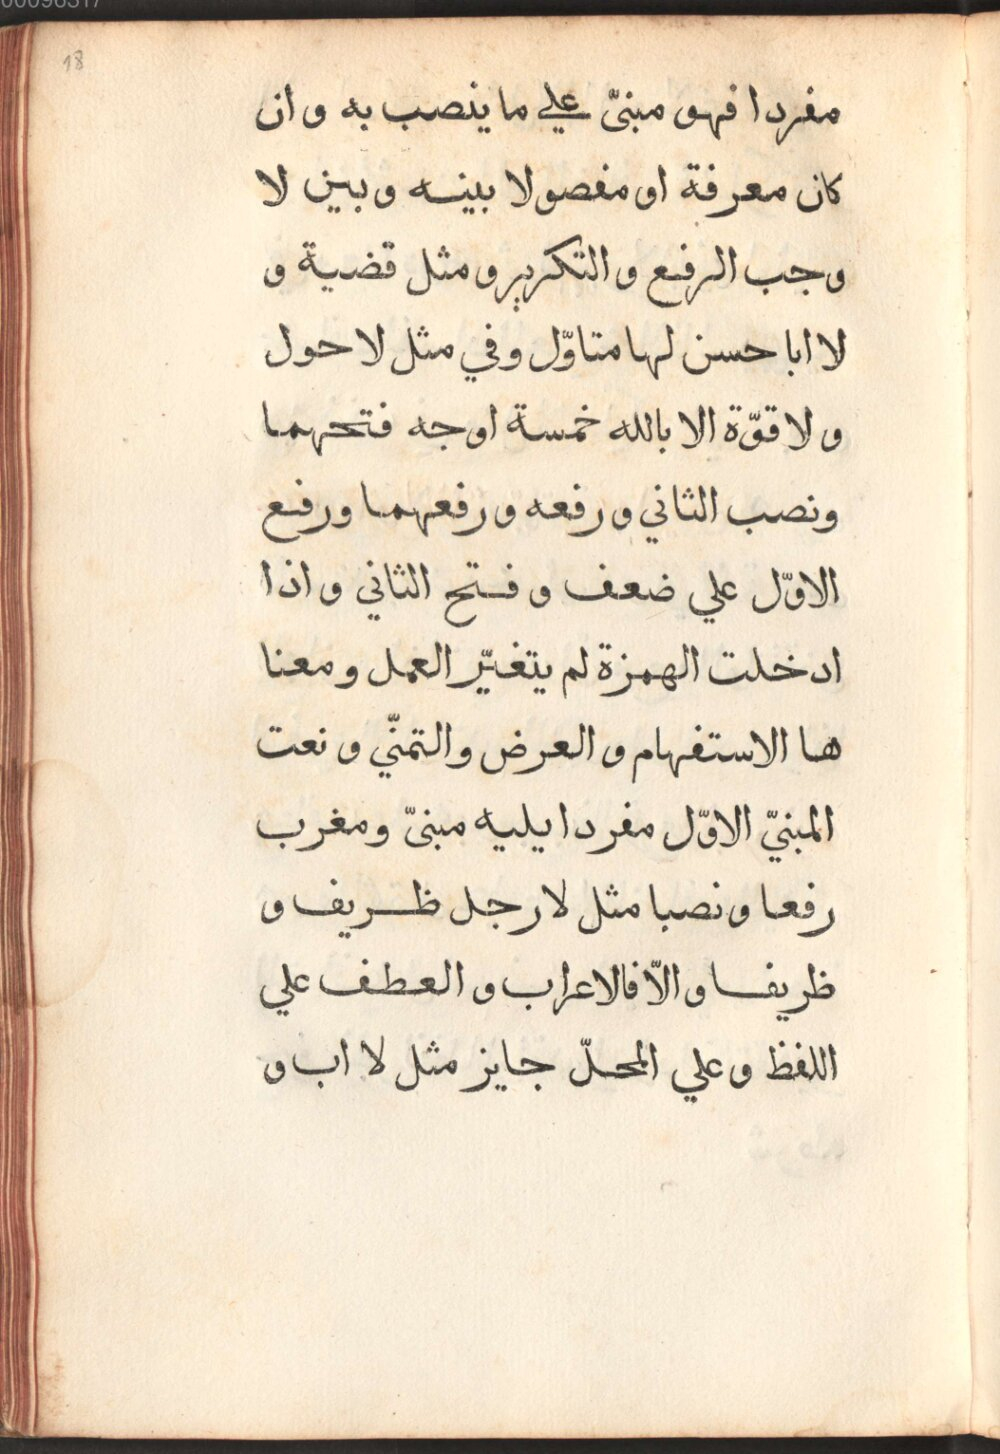 00096317
18
مفردا فهو مبنىّ علي ما ينصب به و ان
كان معرفة او مفصولا بينه و بين لا
وجب الرفع و التكرير و مثل قضية و
لا ابا حسن لها متاوّل و في مثل لا حول
و لا قوّة الا بالله خمسة اوجه فتحهما
ونصب الثاني و رفعه و رفعهما و رفع
الاوّل علي ضعف و فتح الثاني و اذا
ادخلت الهمزة لم يتغيّر العمل و معنا
ها الاستفهام و العرض والتمنّي و نعت
المبنيّ الاوّل مفردا يليه مبنىّ و مغرب
رفعا و نصبا مثل لا رجل ظريف و
ظريفا و الاّ فالاعراب و العطف علي
اللفظ و علي المحلّ جايز مثل لا اب و